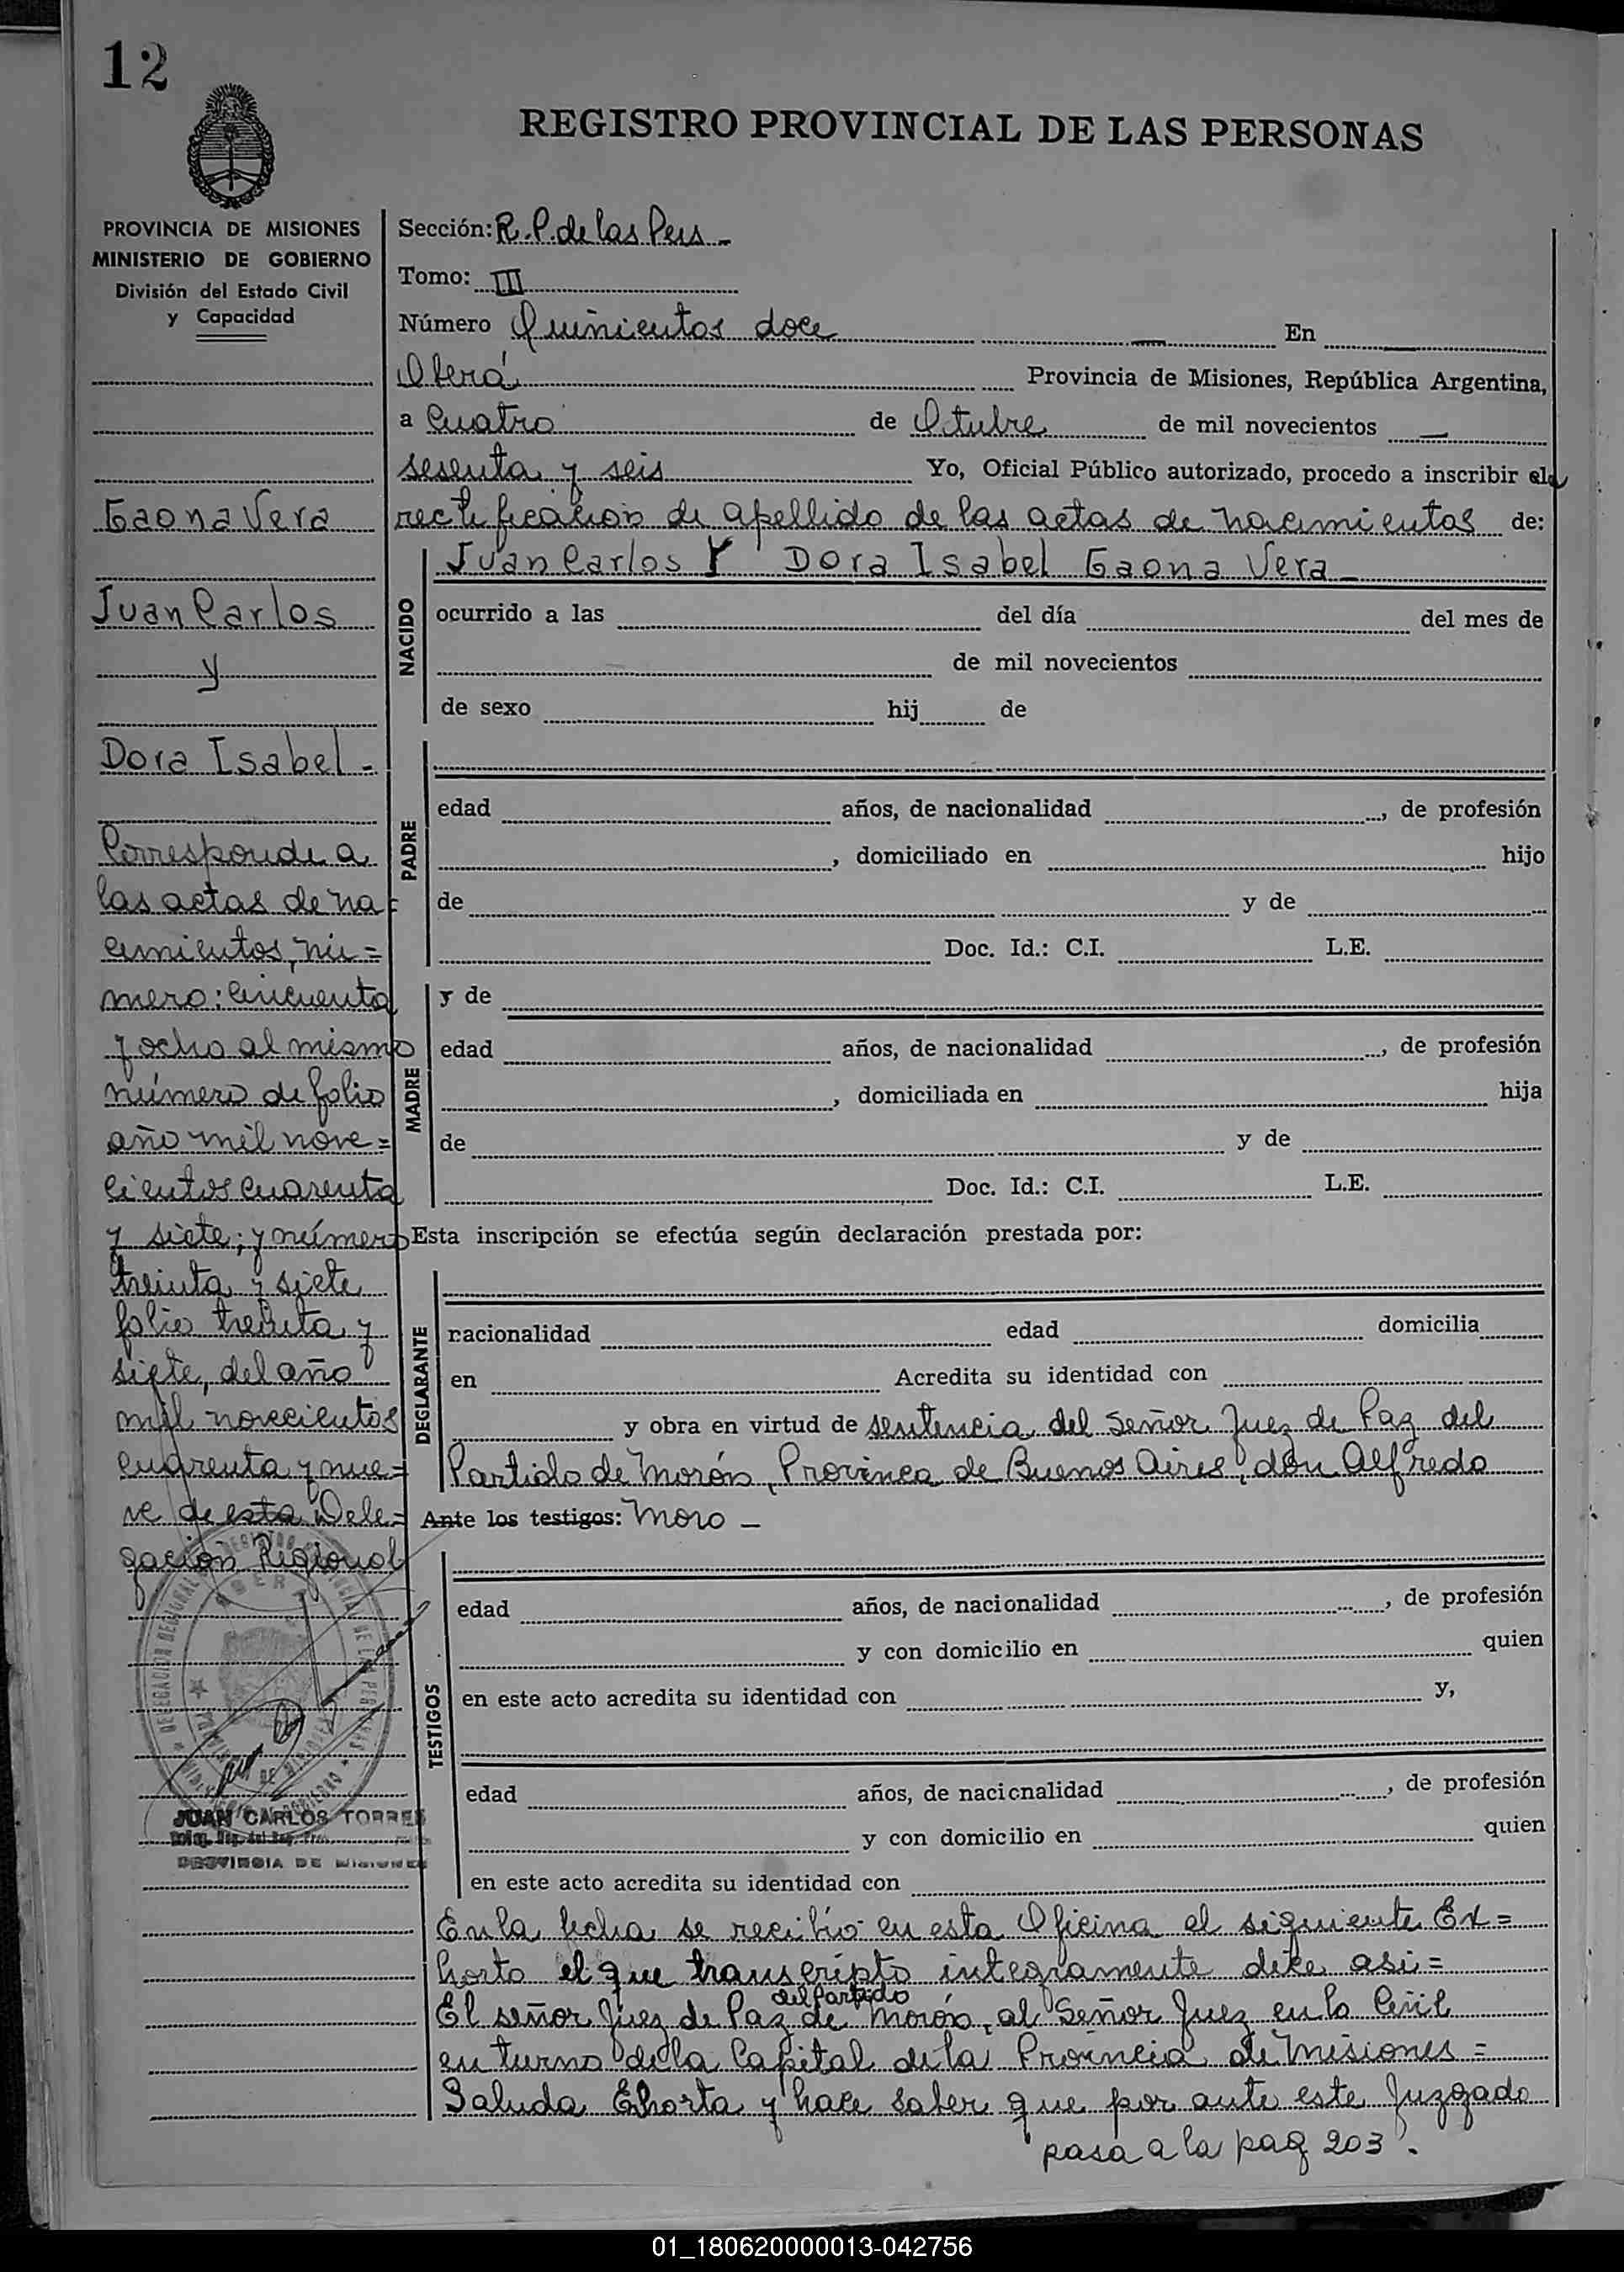 12
REGISTRO PROVINCIAL DE LAS PERSONAS
PROVINCIA DE MISIONES
MINISTERIO DE GOBIERNO
División del Estado Civil
y Capacidad
Gaona Vera
Juan Carlos
y
Dora Isabel -
Corresponde a
las actas de na=
cimientos, nú=
mero: cincuenta
y ocho al mismo
número de folio
año mil nove=
cientos cuarenta
y siete; y número
treinta y siete
folio treinta y
siete, del año
mil novecientos
cuarenta y nue=
ve de esta Dele=
gación Regional
JUAN CARLOS TORRES
PROVINCIA DE MISIONES
Sección: R. P. de las Pers -
Tomo: III
Número Quinientos doce — En —
Oberá Provincia de Misiones, República Argentina,
a Cuatro de Octubre de mil novecientos —
sesenta y seis Yo, Oficial Público autorizado, procedo a inscribir la
rectificación de apellido de las actas de nacimientos de:
NACIDO
Juan Carlos Y Dora Isabel Gaona Vera -
ocurrido a las del día del mes de
de mil novecientos
de sexo hij de
PADRE
edad años, de nacionalidad , de profesión
, domiciliado en hijo
de y de
Doc. Id.: C.I. L.E.
MADRE
y de
edad años, de nacionalidad , de profesión
, domiciliada en hija
de y de
Doc. Id.: C.I. L.E.
Esta inscripción se efectúa según declaración prestada por:
DEGLARANTE
racionalidad edad domicilia
en Acredita su identidad con
y obra en virtud de sentencia del Señor Juez de Paz del
Partido de Morón, Provincia de Buenos Aires, don Alfredo
Ante los testigos: Moro -
TESTIGOS
edad años, de nacionalidad , de profesión
y con domicilio en quien
en este acto acredita su identidad con y,
edad años, de nacicnalidad , de profesión
y con domicilio en quien
en este acto acredita su identidad con
En la fecha se recibió en esta Oficina el siguiente Ex=
horto el que transcripto integramente dice asi=
del Partido
El señor Juez de Paz de Morón, al Señor Juez en lo Civil
en turno de la Capital de la Provincia de Misiones =
Saluda Exhorta y hace saber que por ante este Juzgado
pasa a la pag 203.
01_180620000013-042756